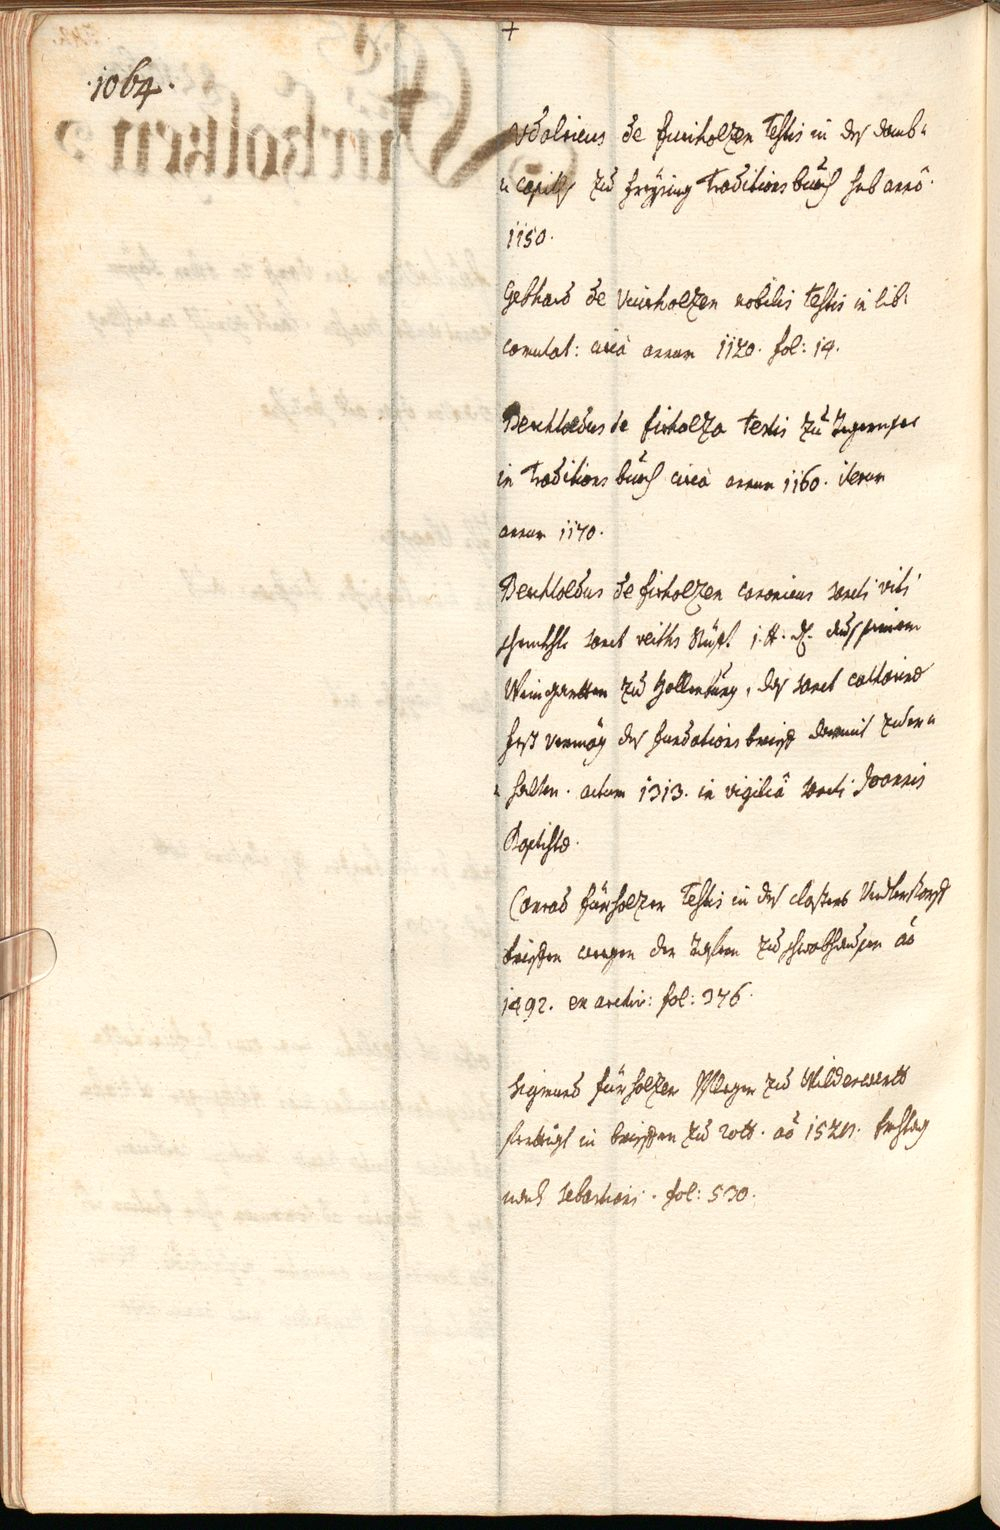 +
·1064·
Vdolricus de fuirholzen testis in des domb-
-capitls zu freysing traditions buech sub anno
1150.
Gebhard de Vuirholzen nobilis testis in lib:
comutat: circa annum 1120. fol: 14.
Berchtoldus de firholza testis zu Tegernsee
in traditions buech circa annum 1160. iterum
annum 1170.
Berchtoldus de firholzen canonicus sancti viti
sanct veiths
Weingartten zu Hollenburg, des sanct catharina
fest vermög des fundations brieffs darmit zu er-
-halten. actum 1313. in vigilia sancti Joannis
Baptistæ.
Conrad fürholzer testis in des closters Understorff
brieffen wegen der zu schwabhausen aõ
1492. ex archiv: fol: 376.
Sigmund fürholzer Pfleger zu Wilderwertt
in brieffen zu rott. aõ 152
nach sebastiani. fol: 530.